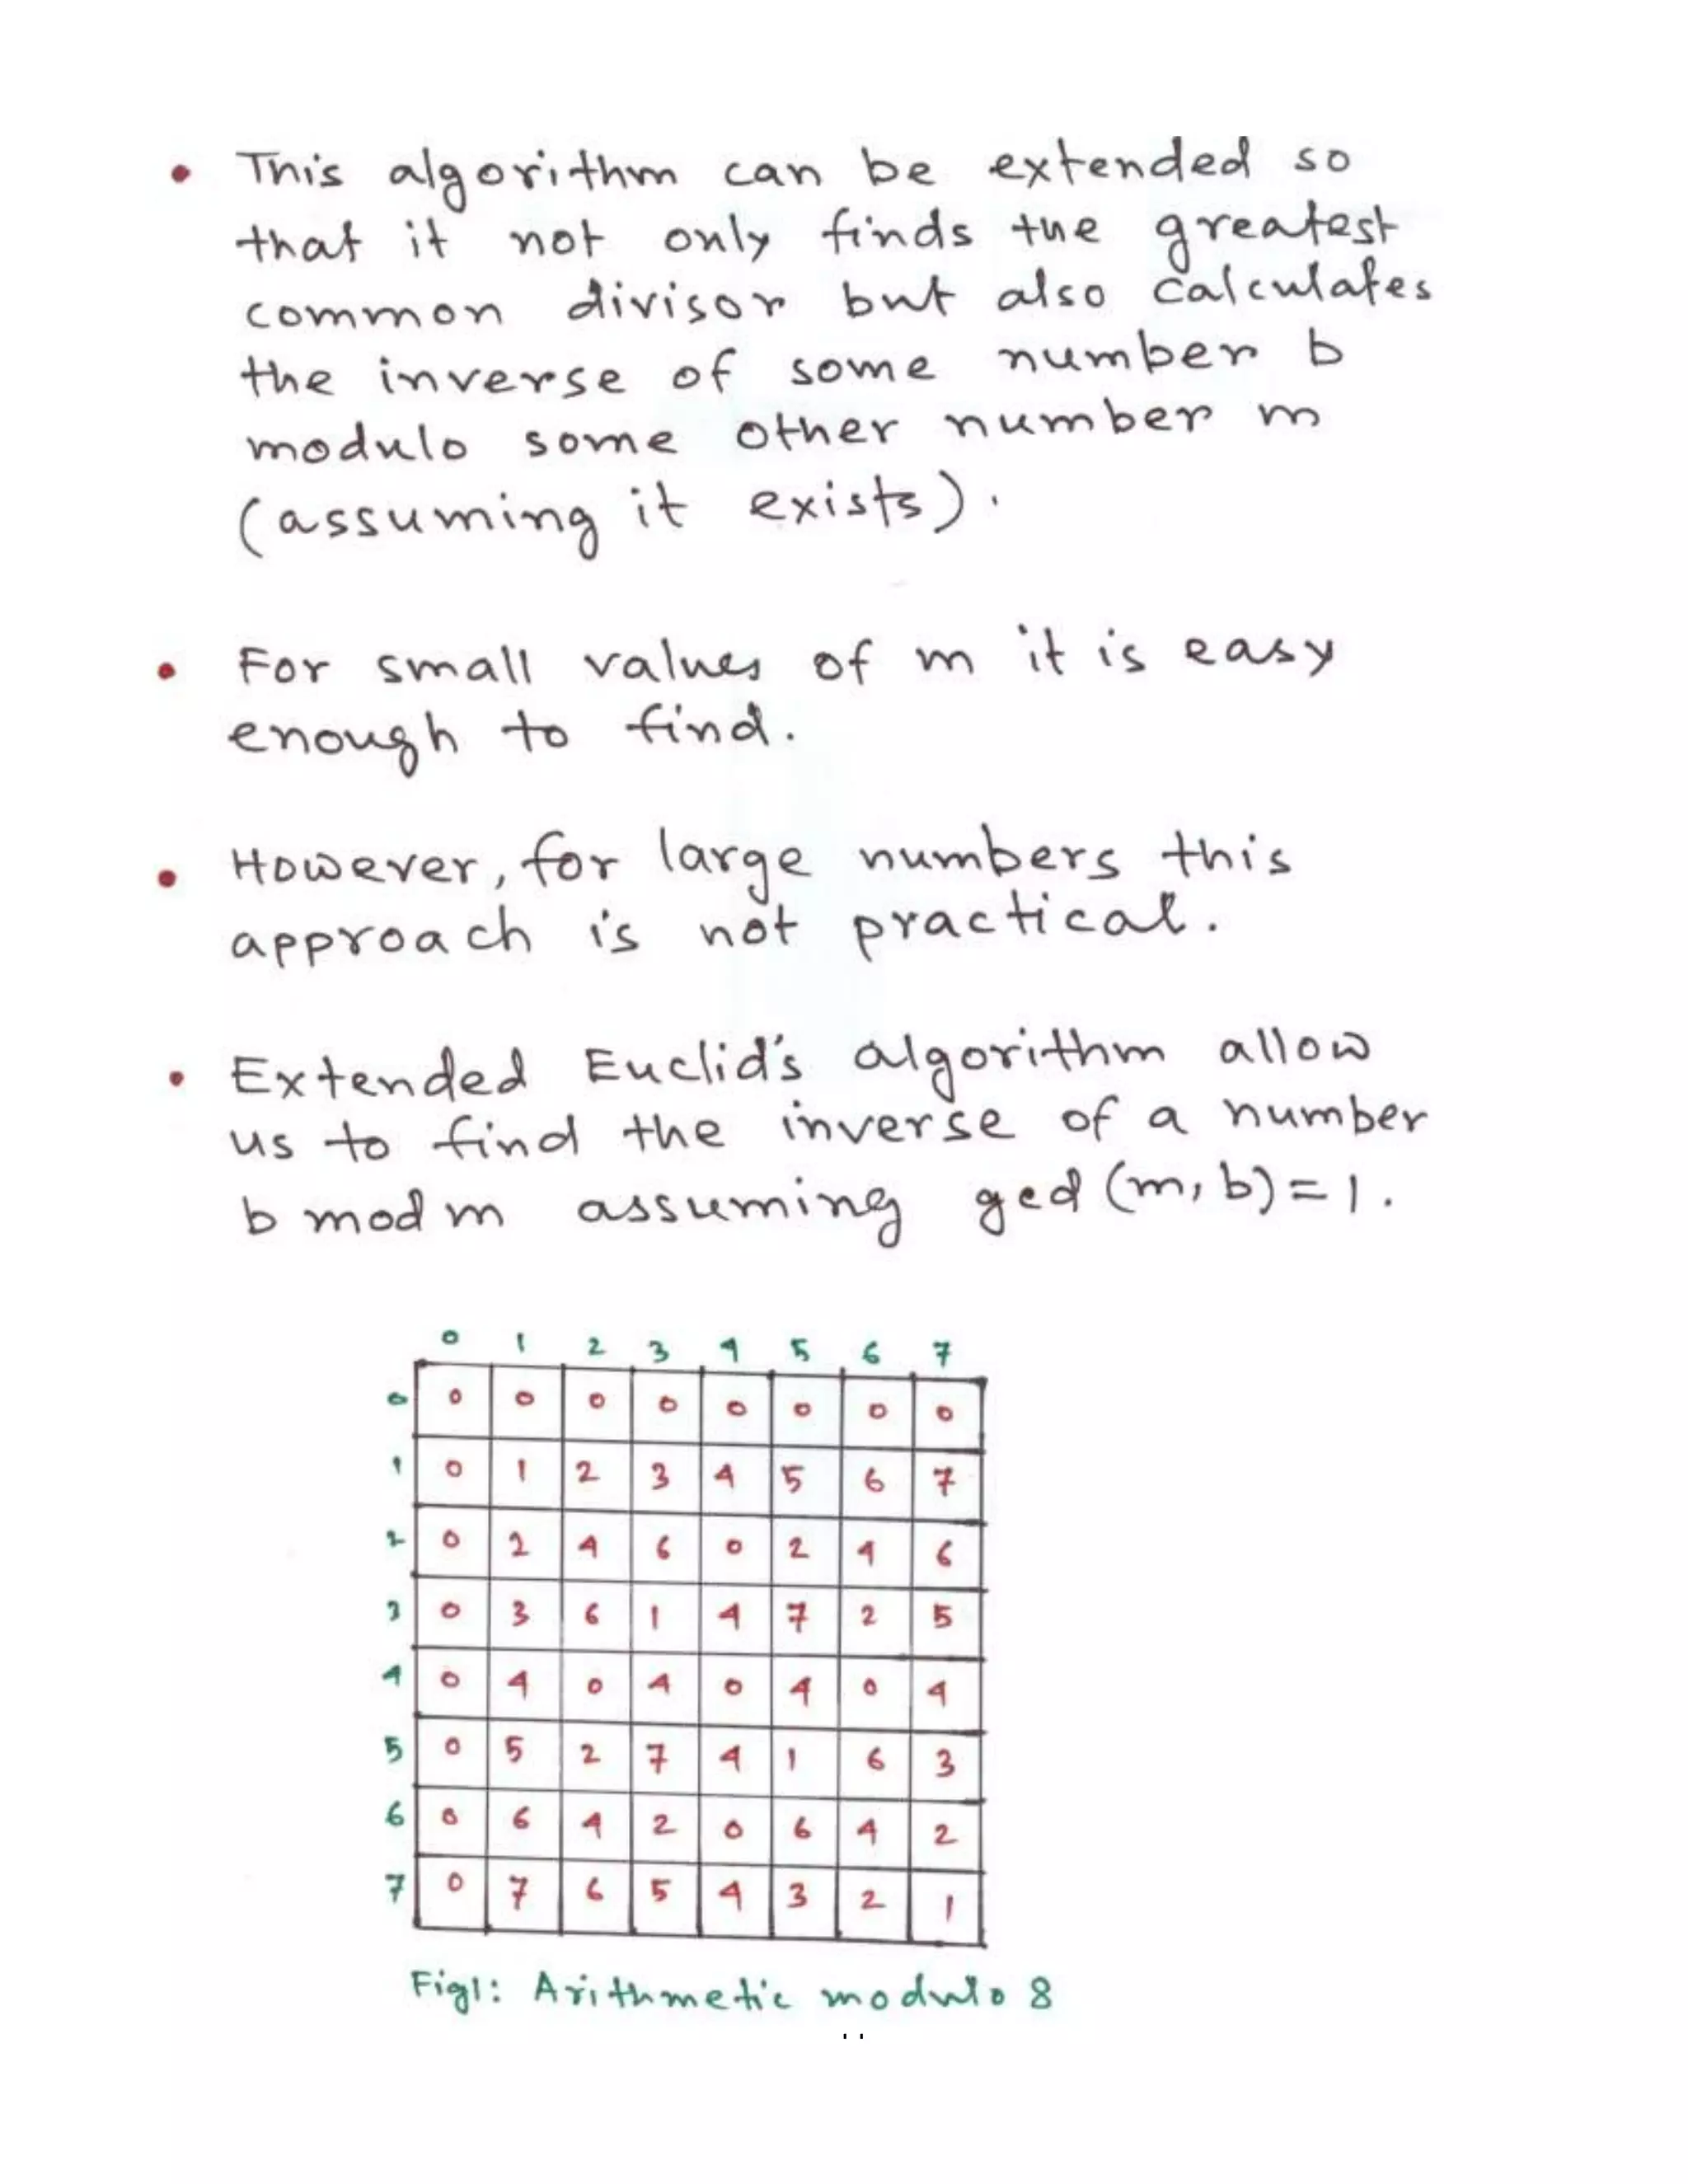 • This algorithm can be extended so
that it not only finds the greatest
common divisor but also calculates
the inverse of some number b
modulo some other number m
(assuming it exists).
• For small values of m it is easy
enough to find.
• However, for large numbers this
approach is not practical.
• Extended Euclid's algorithm allow
us to find the inverse of a number
b mod m assuming gcd (m, b) = 1.
0 1 2 3 4 5 6 7
0 0 0 0 0 0 0 0 0
1 0 1 2 3 4 5 6 7
2 0 2 4 6 0 2 4 6
3 0 3 6 1 4 7 2 5
4 0 4 0 4 0 4 0 4
5 0 5 2 7 4 1 6 3
6 0 6 4 2 0 6 4 2
7 0 7 6 5 4 3 2 1
Fig1: Arithmetic modulo 8